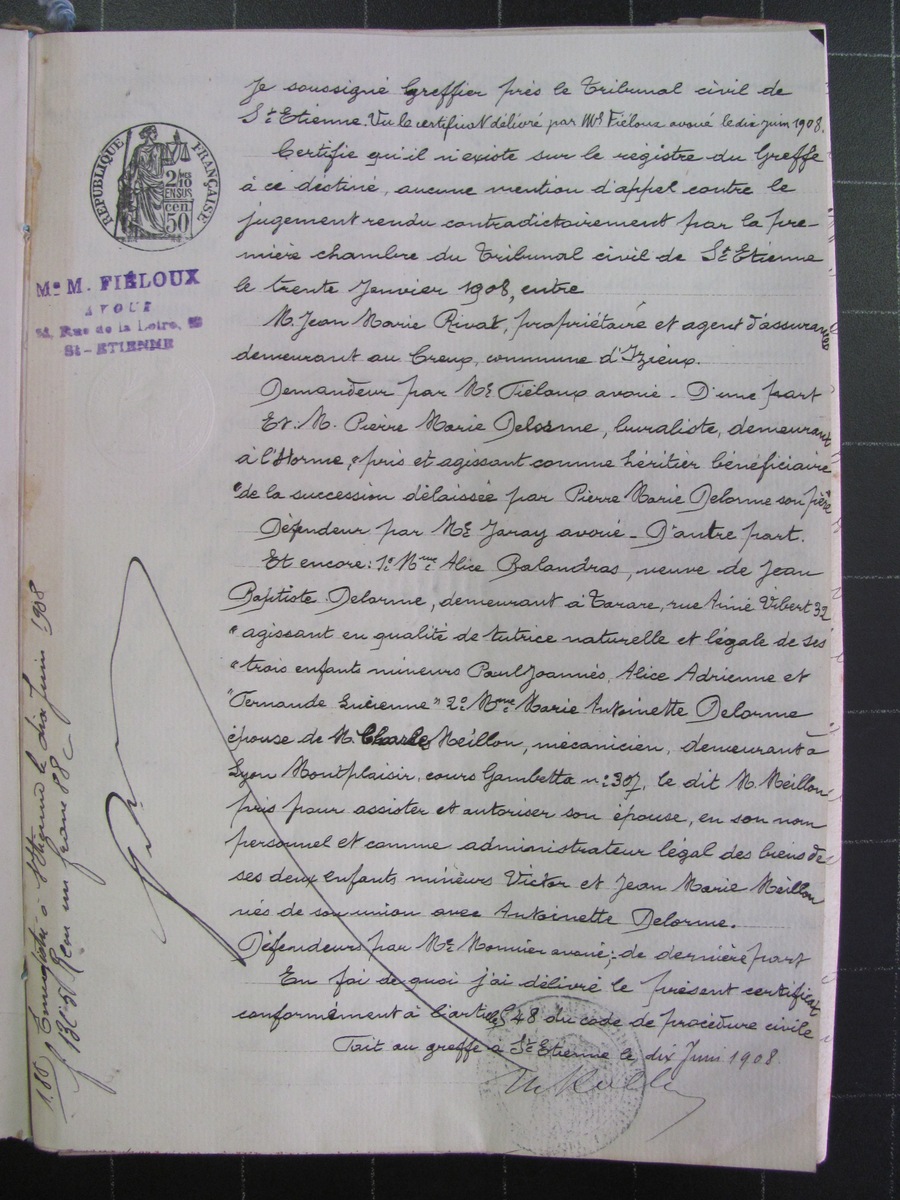 RÉPUBLIQUE FRANÇAISE
2/10 EN SUS
50 cen
Me M. FIÉLOUX
AVOUÉ
Rue de la Loire,
St-ETIENNE
Je soussigné Greffier près le Tribunal civil de
St Etienne. Vu le certificat délivré par Me Fiéloux avoué le dix juin 1908.
Certifie qu'il n'existe sur le régistre du Greffe
à ce destiné, aucune mention d'appel contre le
jugement rendu contradictoirement par la pre-
mière chambre du Tribunal civil de St Etienne
le trente Janvier 1908, entre
M. Jean Marie Rivat, propriétaire et agent d'assurances
demeurant au Creux, commune d'Izieux.
Demandeur par Me Fiéloux avoué - D'une part
Et: M. Pierre Marie Delorme, buraliste, demeurant
à l'Horme, "pris et agissant comme héritier bénéficiaire
"de la succession délaissée par Pierre Marie Delorme son père
Défendeur par Me Jaray avoué - D'autre part.
Et encore: 1o Mme Alice Balandras, veuve de Jean
Baptiste Delorme, demeurant à Tarare, rue Aimé Vibert 32
"agissant en qualité de tutrice naturelle et légale de ses
"trois enfants mineurs Paul Joannès, Alice Adrienne et
"Fernande Lucienne" 2o Mme Marie Antoinette Delorme
épouse de M. Charles Meillon, mécanicien, demeurant à
Lyon Montplaisir, cours Gambetta no 307, le dit M. Meillon
pris pour assister et autoriser son épouse, en son nom
personnel et comme administrateur légal des biens de
ses deux enfants mineurs Victor et Jean Marie Meillon
nés de son union avec Antoinette Delorme.
Défendeurs par Me Monnier avoué; de dernière part
En foi de quoi j'ai délivré le présent certificat
conformément à l'article 548 du code de procédure civile
Fait au greffe à St Etienne le dix Juin 1908.
1.88 Enregistré à St Etienne le dix juin 1908
Reçu un franc 88 c